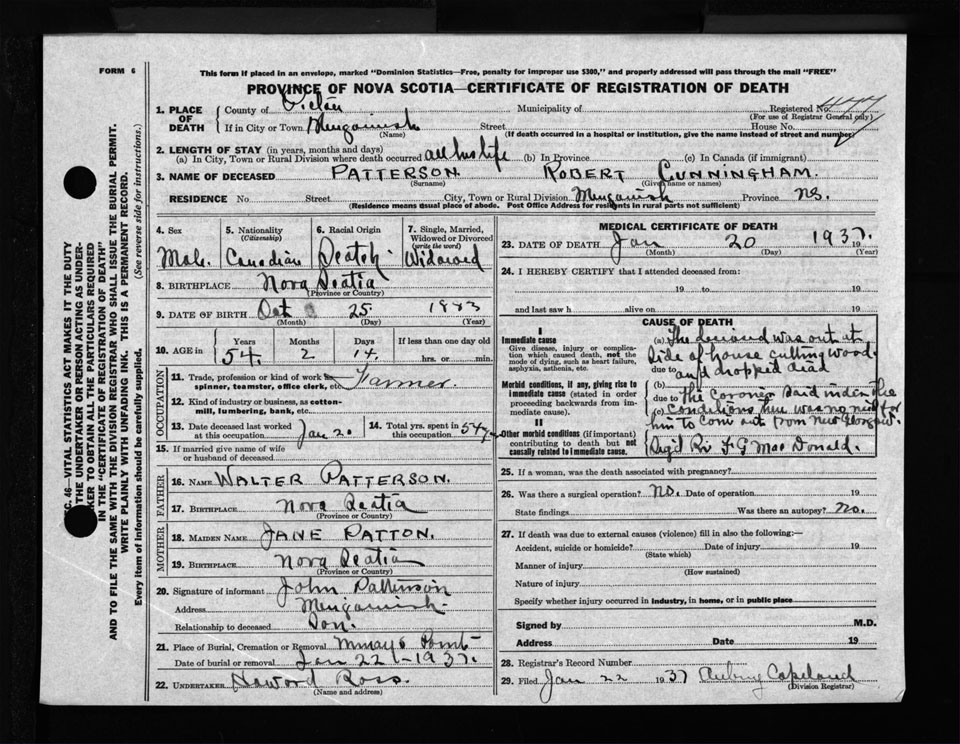 FORM 6
This form if placed in an envelope, marked "Dominion Statistics—Free, penalty for improper use $300," and properly addressed will pass through the mail "FREE"
PROVINCE OF NOVA SCOTIA—CERTIFICATE OF REGISTRATION OF DEATH
SEC. 46—VITAL STATISTICS ACT MAKES IT THE DUTY
OF THE UNDERTAKER OR PERSON ACTING AS UNDER-
TAKER TO OBTAIN ALL THE PARTICULARS REQUIRED
IN THE "CERTIFICATE OF REGISTRATION OF DEATH"
AND TO FILE THE SAME WITH THE DIVISION REGISTRAR WHO SHALL ISSUE THE BURIAL PERMIT.
WRITE PLAINLY WITH UNFADING INK. THIS IS A PERMANENT RECORD.
Every item of Information should be carefully supplied. (See reverse side for instructions.)
1. PLACE OF DEATH County of Pictou Municipality of Registered No.
(For use of Registrar General only)
If in City or Town Street House No.
(Name) (If death occurred in a hospital or institution, give the name instead of street and number)
2. LENGTH OF STAY (in years, months and days)
(a) In City, Town or Rural Division where death occurred all his life (b) In Province (c) In Canada (if immigrant)
3. NAME OF DECEASED PATTERSON ROBERT CUNNINGHAM.
(Surname) (Given name or names)
RESIDENCE No Street City, Town or Rural Division Province N.S.
(Residence means usual place of abode. Post Office Address for residents in rural parts not sufficient)
4. Sex 5. Nationality 6. Racial Origin 7. Single, Married,
(Citizenship) Widowed or Divorced
(write the word)
Male Canadian Scotch Widowed
8. BIRTHPLACE Nova Scotia
(Province or Country)
9. DATE OF BIRTH Oct 25. 1883
(Month) (Day) (Year)
10. AGE in Years Months Days If less than one day old
54 2 14. hrs. or min.
OCCUPATION
11. Trade, profession or kind of work as
spinner, teamster, office clerk, etc. Farmer.
12. Kind of industry or business, as cotton-
mill, lumbering, bank, etc.
13. Date deceased last worked 14. Total yrs. spent in
at this occupation Jan 20 this occupation 54
15. If married give name of wife
or husband of deceased
FATHER
16. NAME WALTER PATTERSON.
17. BIRTHPLACE Nova Scotia
(Province or Country)
MOTHER
18. MAIDEN NAME JANE PATTON.
19. BIRTHPLACE Nova Scotia
(Province or Country)
20. Signature of informant John Patterson
Address
Relationship to deceased Son.
21. Place of Burial, Cremation or Removal Point
Date of burial or removal Jan 22 - 1937.
22. UNDERTAKER Howard Ross.
(Name and address)
MEDICAL CERTIFICATE OF DEATH
23. DATE OF DEATH Jan 20 1937. 19
(Month) (Day) (Year)
24. I HEREBY CERTIFY that I attended deceased from:
19 to 19
and last saw h alive on 19
CAUSE OF DEATH
I
Immediate cause
Give disease, injury or complica-
tion which caused death, not the
mode of dying, such as heart failure,
asphyxia, asthenia, etc.
Morbid conditions, if any, giving rise to
immediate cause (stated in order
proceeding backwards from im-
mediate cause).
II
Other morbid conditions (if important)
contributing to death but not
causally related to immediate cause.
(a) The deceased was out at
side of house cutting wood
due to and dropped dead
(b)
due to The coroner said under the
(c) Conditions there was no need for
him to come out from New Glasgow.
F G MacDonald.
25. If a woman, was the death associated with pregnancy?
26. Was there a surgical operation? no. Date of operation 19
State findings Was there an autopsy? no.
27. If death was due to external causes (violence) fill in also the following:—
Accident, suicide or homicide? Date of injury 19
(State which)
Manner of injury
(How sustained)
Nature of injury
Specify whether injury occurred in industry, in home, or in public place
Signed by M.D.
Address Date 19
28. Registrar's Record Number
29. Filed Jan 22 1937 Aubrey Copeland
(Division Registrar)